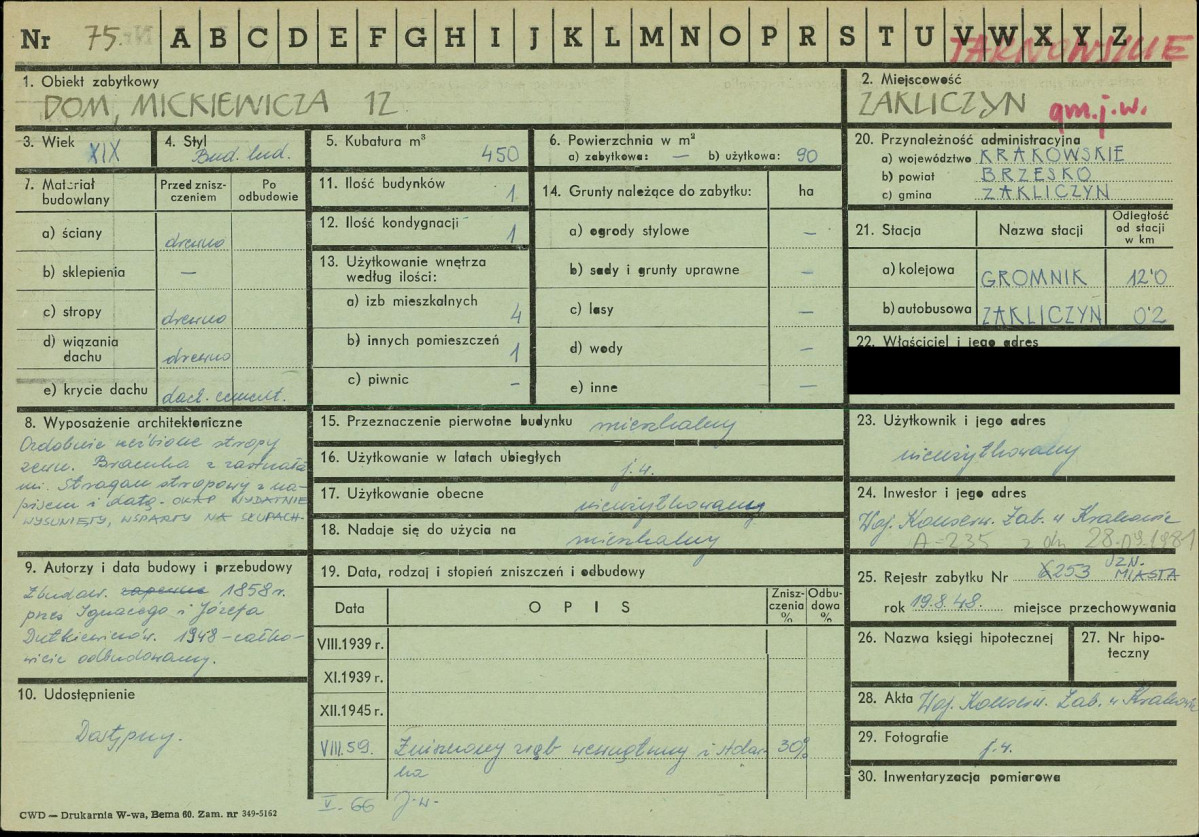 Nr 75. A B C D E F G H I J K L M N O P R S T U V W X Y Z
TARNOWSKIE
1. Obiekt zabytkowy
DOM, MICKIEWICZA 12
2. Miejscowość
ZAKLICZYN gm.j.w.
3. Wiek XIX
4. Styl Bud. lud.
5. Kubatura m³ 450
6. Powierzchnia w m²
a) zabytkowa: — b) użytkowa: 90
20. Przynależność administracyjna
a) województwo KRAKOWSKIE
b) powiat BRZESKO
c) gmina ZAKLICZYN
7. Materiał budowlany
Przed zniszczeniem
Po odbudowie
a) ściany drewno
b) sklepienia —
c) stropy drewno
d) wiązania dachu drewno
e) krycie dachu dach. cement.
11. Ilość budynków 1
12. Ilość kondygnacji 1
13. Użytkowanie wnętrza
według ilości:
a) izb mieszkalnych 4
b) innych pomieszczeń 1
c) piwnic –
14. Grunty należące do zabytku: ha
a) ogrody stylowe —
b) sady i grunty uprawne —
c) lasy —
d) wody —
e) inne —
21. Stacja
Nazwa stacji
Odległość
od stacji
w km
a) kolejowa GROMNIK 12'0
b) autobusowa ZAKLICZYN 0'2
22. Właściciel i jego adres
8. Wyposażenie architektoniczne
Ozdobnie rzeźbione stropy
zewn. Bramka z zastrzała
mi. Stragarz stropowy z na-
pisem i datą. OKAP WYDATNIE
WYSUNIĘTY, WSPARTY NA SŁUPACH
15. Przeznaczenie pierwotne budynku mieszkalny
16. Użytkowanie w latach ubiegłych j.w.
17. Użytkowanie obecne nieużytkowany
18. Nadaje się do użycia na mieszkalny
23. Użytkownik i jego adres
nieużytkowany
24. Inwestor i jego adres
Woj. Konserw. Zab. w Krakowie
A-235 z dn. 28.09.1981
9. Autorzy i data budowy i przebudowy
Zbudow. zapewne 1858 r.
przez Ignacego i Józefa
Dutkiewiczów. 1948 – całko-
wicie odbudowany.
10. Udostępnienie
Dostępny.
19. Data, rodzaj i stopień zniszczeń i odbudowy
Data
OPIS
Zniszczenia %
Odbudowa %
VIII.1939 r.
XI.1939 r.
XII.1945 r.
VIII.59. Zniszczony zrąb wewnętrzny i stolar- 30%
ka
V-66 j.w.
25. Rejestr zabytku Nr 253 UZN. MIASTA
rok 19.8.48. miejsce przechowywania
26. Nazwa księgi hipotecznej
27. Nr hipoteczny
28. Akta Woj. Konserw. Zab. w Krakowie
29. Fotografie j.w.
30. Inwentaryzacja pomiarowa
CWD — Drukarnia W-wa, Bema 60. Zam. nr 349-5162